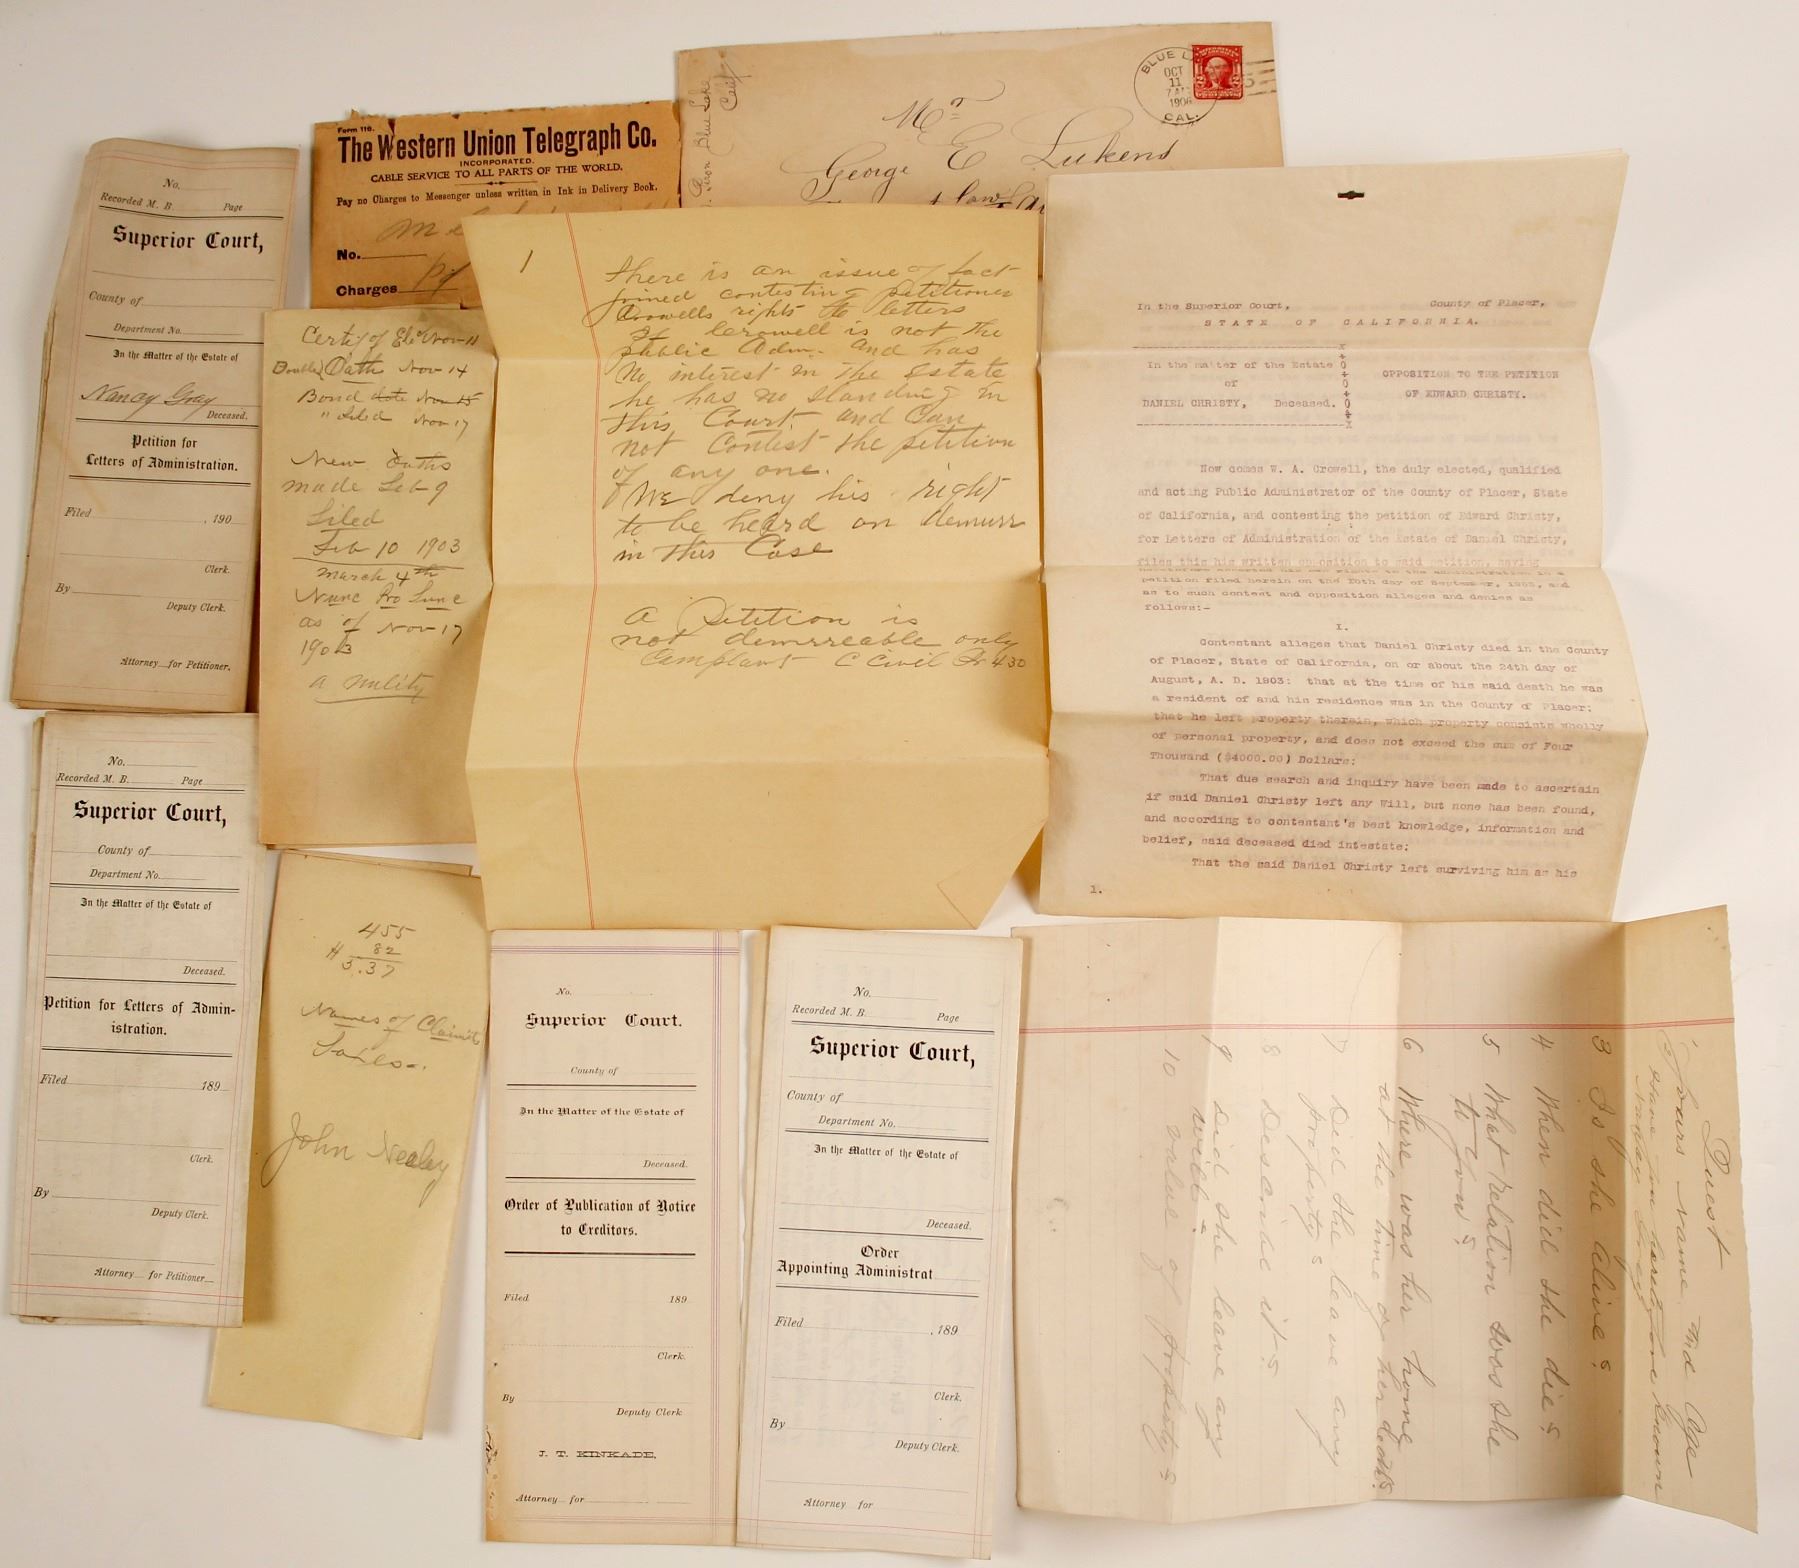 No.
Recorded M. B. Page
Superior Court,
County of
Department No.
In the Matter of the Estate of
Nancy Gray
Deceased.
Petition for
Letters of Administration.
Filed , 190
Clerk.
By
Deputy Clerk.
Attorney for Petitioner.
Form 116.
The Western Union Telegraph Co.
INCORPORATED.
CABLE SERVICE TO ALL PARTS OF THE WORLD.
Pay no Charges to Messenger unless written in Ink in Delivery Book.
No.
Charges Pd
Blue Lake
Calif
BLUE L
OCT
11
7 AM
1906
CAL.
Mr
George E Lukens
Certif of Elec Nov 11
Oath Nov 14
Bond date Nov 15
" filed Nov 17
New Oaths
made Feb 9
Filed
Feb 10 1903
March 4th
Nunc Pro Tunc
as of Nov 17
1903
a nulity
1
there is an issue of fact
joined contesting petitioner
Crowells rights to letters
If Crowell is not the
public Adm. and has
no interest in the Estate
he has no standing in
this Court and can
not contest the petition
of any one.
We deny his right
to be heard on demurr
in this Case
A Petition is
not demurreable only
Complaint C Civil Pr 430
In the Superior Court, County of Placer,
STATE OF CALIFORNIA.
In the matter of the Estate
of
DANIEL CHRISTY, Deceased.
OPPOSITION TO THE PETITION
OF EDWARD CHRISTY.
Now comes W. A. Crowell, the duly elected, qualified
and acting Public Administrator of the County of Placer, State
of California, and contesting the petition of Edward Christy,
for Letters of Administration of the Estate of Daniel Christy,
files this his written opposition to said petition, having
heretofore asserted his own rights to the administration in a
petition filed herein on the 10th day of September, 1903, and
as to such contest and opposition alleges and denies as
follows:-
I.
Contestant alleges that Daniel Christy died in the County
of Placer, State of California, on or about the 24th day of
August, A. D. 1903: that at the time of his said death he was
a resident of and his residence was in the County of Placer;
that he left property therein, which property consists wholly
of personal property, and does not exceed the sum of Four
Thousand ($4000.00) Dollars;
That due search and inquiry have been made to ascertain
if said Daniel Christy left any Will, but none has been found,
and according to contestant's best knowledge, information and
belief, said deceased died intestate;
That the said Daniel Christy left surviving him as his
1.
No.
Recorded M. B. Page
Superior Court,
County of
Department No.
In the Matter of the Estate of
Deceased.
Petition for Letters of Admin-
istration.
Filed 189
Clerk.
By
Deputy Clerk.
Attorney for Petitioner
455
82
3.37
Names of
John Nealey
No.
Superior Court.
County of
In the Matter of the Estate of
Deceased.
Order of Publication of Notice
to Creditors.
Filed 189
Clerk.
By
Deputy Clerk
J. T. KINKADE,
Attorney for
No.
Recorded M. B. Page
Superior Court,
County of
Department No.
In the Matter of the Estate of
Deceased.
Order
Appointing Administrat
Filed , 189
Clerk.
By
Deputy Clerk.
Attorney for
Quest
1 Yours Name and Age
2 Have you heretofore known
Nancy Gray
3 Is she alive?
4 When did she die?
5 What relation was she
to you?
6 Where was her home
at the time of her death?
7 Did she leave any
property?
8 Describe it?
9 Did she leave any
will?
10 Value of property?